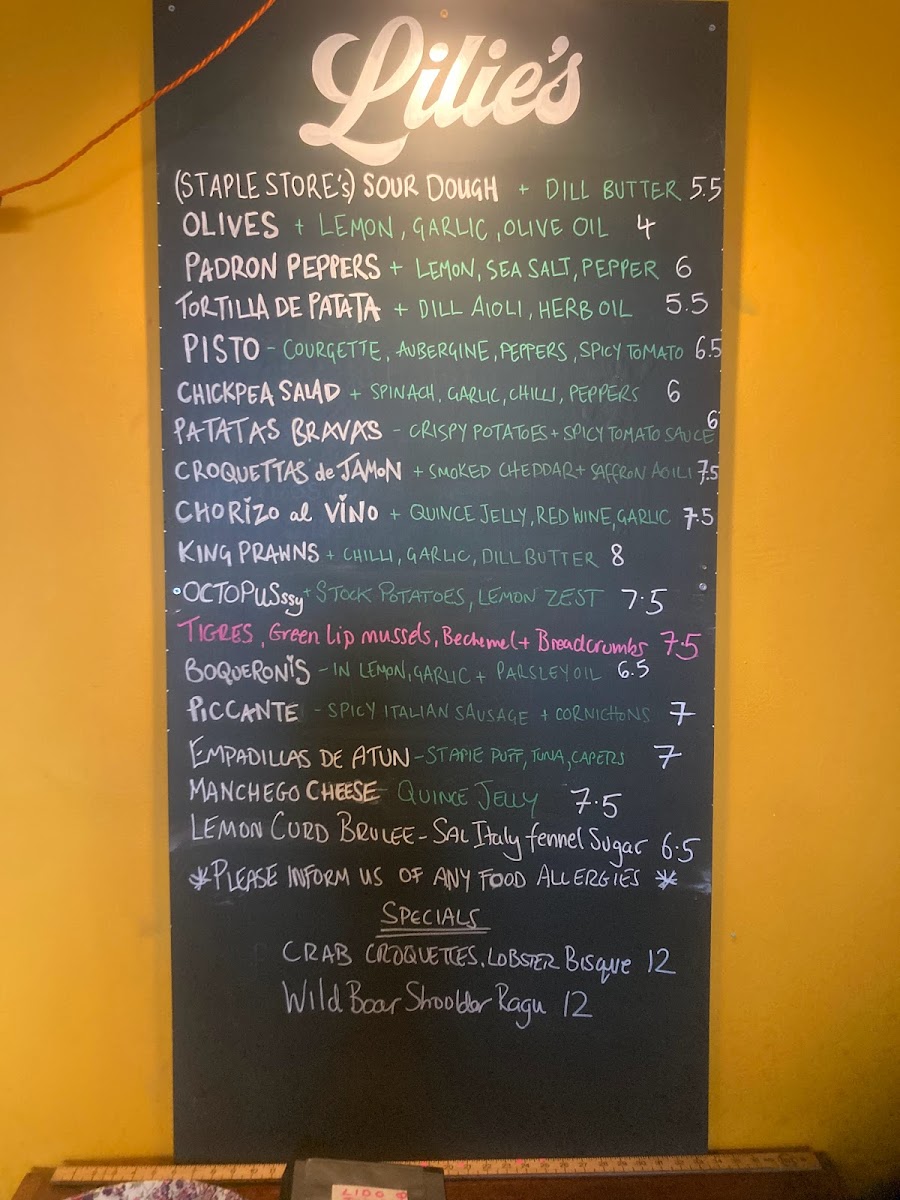 Lilie's
(STAPLE STORE's) SOUR DOUGH + DILL BUTTER 5.5
OLIVES + LEMON, GARLIC, OLIVE OIL 4
PADRON PEPPERS + LEMON, SEA SALT, PEPPER 6
TORTILLA DE PATATA + DILL AIOLI, HERB OIL 5.5
PISTO - COURGETTE, AUBERGINE, PEPPERS, SPICY TOMATO 6.5
CHICKPEA SALAD + SPINACH, GARLIC, CHILLI, PEPPERS 6
PATATAS BRAVAS - CRISPY POTATOES + SPICY TOMATO SAUCE 6
CROQUETTAS de JAMON + SMOKED CHEDDAR + SAFFRON AOILI 7.5
CHORIZO al VINO + QUINCE JELLY, RED WINE, GARLIC 7.5
KING PRAWNS + CHILLI, GARLIC, DILL BUTTER 8
OCTOPUSssy + STOCK POTATOES, LEMON ZEST 7.5
TIGRES, Green Lip mussels, Bechemel + Breadcrumbs 7.5
BOQUERONiS - IN LEMON, GARLIC + PARSLEY OIL 6.5
PiCCANTE - SPICY ITALIAN SAUSAGE + CORNICHONS 7
EMPADILLAS DE ATUN - STAPLE PUFF, TUNA, CAPERS 7
MANCHEGO CHEESE QUINCE JELLY 7.5
LEMON CURD BRULEE - SAL Italy fennel Sugar 6.5
*PLEASE INFORM US OF ANY FOOD ALLERGIES *
SPECIALS
CRAB CROQUETTES, LOBSTER Bisque 12
Wild Boar Shoolder Ragu 12
LIDO